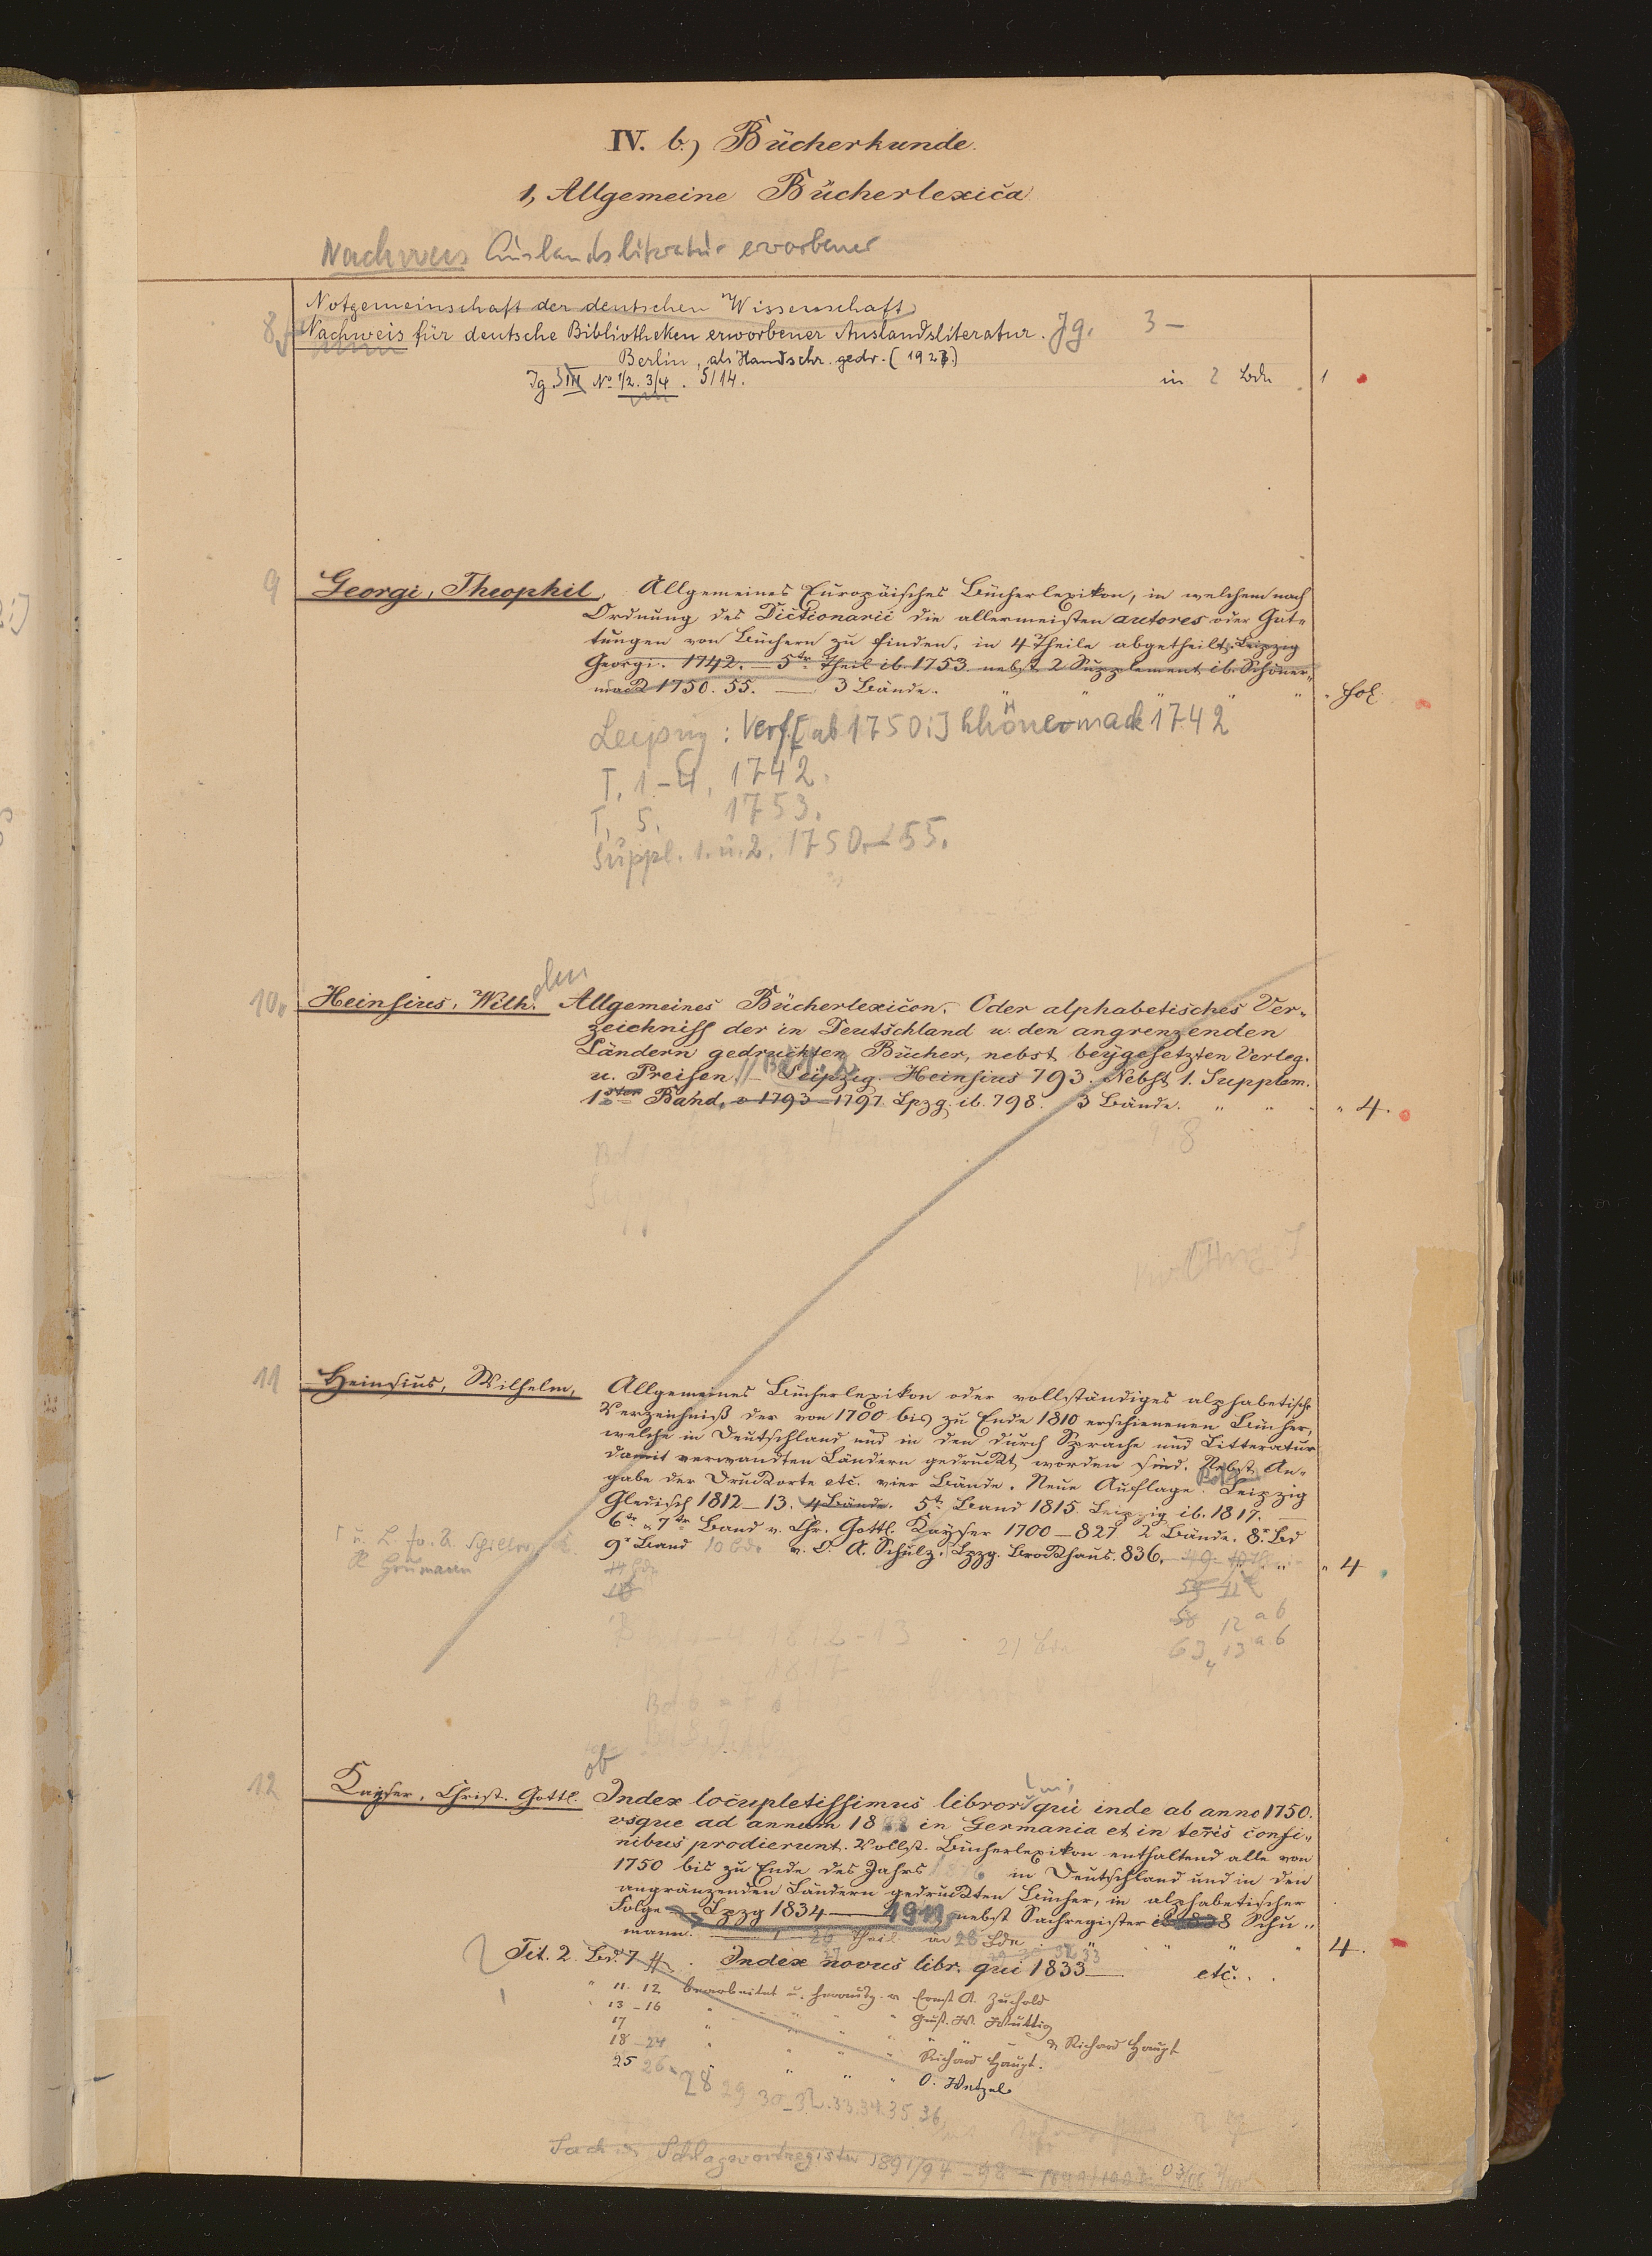 IV. b.) Bücherkunde.
1, Allgemeine Bücherlexica
Nachweis Auslandsliteratur erworbener
Notgemeinschaft der deutschen Wissenschaft
8 Nachweis für deutsche Bibliotheken erworbener Auslandsliteratur. Jg. 3 –
Berlin, als Handschr. gedr. (1923.)
Jg. III No 1/2. 3/4. 5/14. in 2 Bdn 1
9 Georgi, Theophil, Allgemeines Europäisches Bücherlexikon, in welchem nach
Ordnung des Dictionarii die allermeisten autores oder Gat-
tungen von Büchern zu finden, in 4 Theile abgetheilt. Leipzig
Georgi. 1742. — 5ter Theil ib. 1753 nebst 2 Supplement ib. Schöner-
mack 1750. 55. — 3 Bände. " " " " " Fol.
Leipzig: Verf. [ab 1750:] Schönermack 1742
T. 1.-4. 1742.
T. 5. 1753.
Suppl. 1. u. 2. 1750–55.
10. Heinsius, Wilh. Allgemeines Bücherlexicon. Oder alphabetisches Ver-
zeichniss der in Deutschland u. den angrenzenden
Ländern gedruckten Bücher, nebst beygesetzten Verleg.
u. Preisen. – Leipzig. Heinsius 793. Nebst 1. Supplem.
1ster Band, v 1793–1797 Lpzg. ib. 798. 3 Bände. " " " " 4.
11 Heinsius, Wilhelm, Allgemeines Bücherlexikon oder vollständiges alphabetisches
Verzeichniß der von 1700 bis zu Ende 1810 erschienenen Bücher,
welche in Deutschland und in den durch Sprache und Litteratur
damit verwandten Ländern gedruckt worden sind. Nebst An-
gabe der Druckorte etc. vier Bände. Neue Auflage. Leipzig
Gleditsch 1812–13. 4 Bände. 5tr Band 1815 Leipzig ib. 1817. —
6tr u 7tr Band v. Chr. Gottl. Kayser 1700–827 2 Bände. 8r Bd
9r Band 10 Bd. v. O. A. Schulz. Lpzg. Brockhaus. 836. " 4
12 ab
63 13 ab
12 Kayser, Christ. Gottl. Index locupletissimus librorum qui inde ab anno 1750.
vsque ad annum 18 in Germania et in terris confi-
nibus prodierunt. Vollst. Bücherlexikon enthaltend alle von
1750 bis zu Ende des Jahrs in Deutschland und in den
angränzenden Ländern gedruckten Bücher, in alphabetischer
Folge. Lpzg 1834 — 1911 nebst Sachregister 1838 Schu-
mann. Theil in 28 Bdn " " " 4.
Tit. 2. Bd. 7 ff. Index novus libr. qui 1833 — etc. . .
" 11. 12 bearbeitet u. herausg. v Ernst A. Zuchold
" 13–16 " " " " Gust. W. Wuttig
17 " " " " " & Richard Haupt
18–24 " " " " Richard Haupt.
25 26 " " " " O. Wetzel
28 29 30–32. 33. 34. 35. 36
Sach- u Schlagwortregister 1891/94 – 98 –